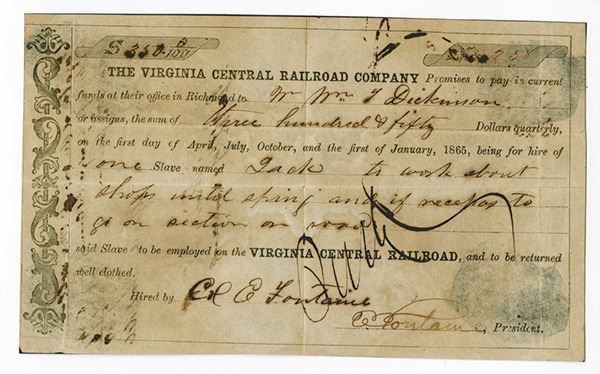 $ 350 0/100
THE VIRGINIA CENTRAL RAILROAD COMPANY Promises to pay in current
funds at their office in Richmond to Wm T Dickinson
or assigns, the sum of three hundred & fifty Dollars quarterly,
on the first day of April, July, October, and the first of January, 1865, being for hire of
one Slave named Jack to work about
shops until spring and if to
go on section on road
said Slave to be employed on the VIRGINIA CENTRAL RAILROAD, and to be returned
well clothed.
Paid
Hired by E Fontaine
E Fontaine, President.